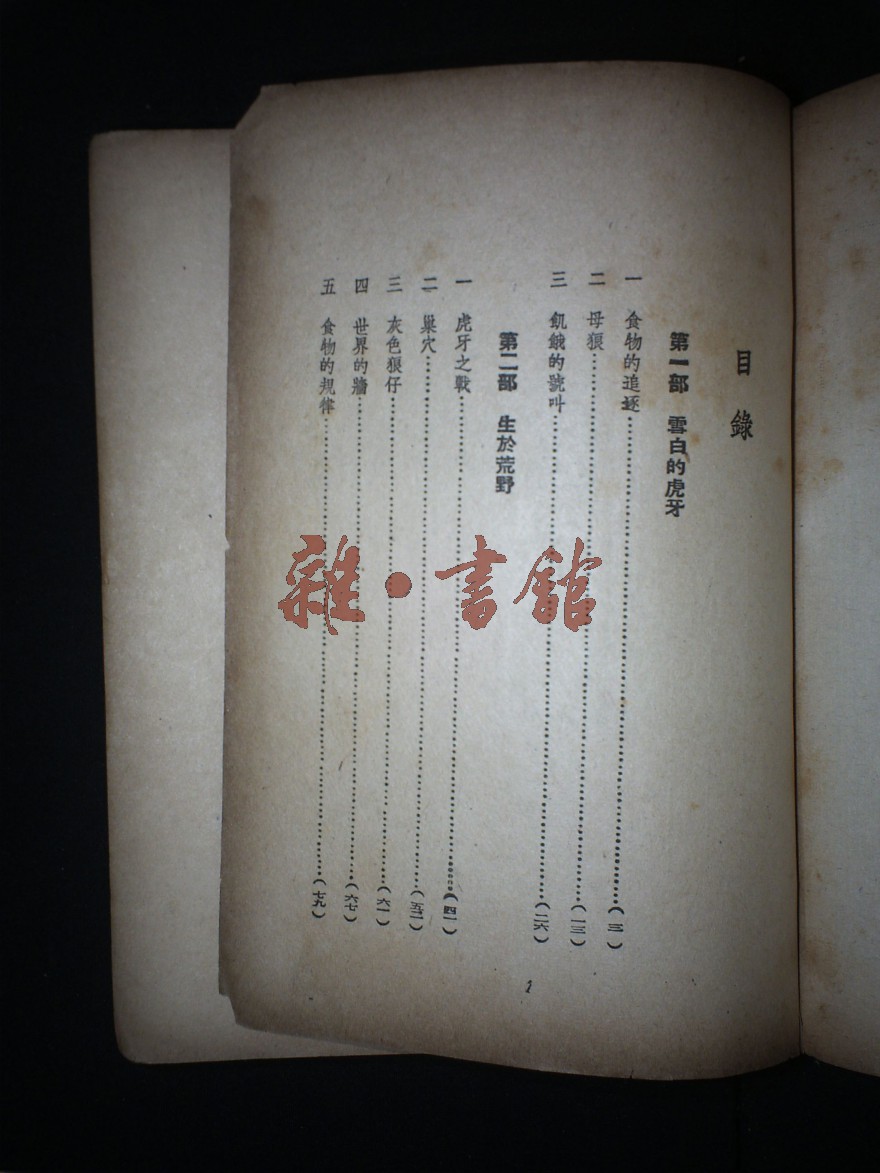 目錄
第一部 雪白的虎牙
一 食物的追逐……(三)
二 母狼……(一三)
三 飢餓的號叫……(二六)
第二部 生於荒野
一 虎牙之戰……(四一)
二 巢穴……(五二)
三 灰色狼仔……(六一)
四 世界的牆……(六七)
五 食物的規律……(七九)
1
雜·書館